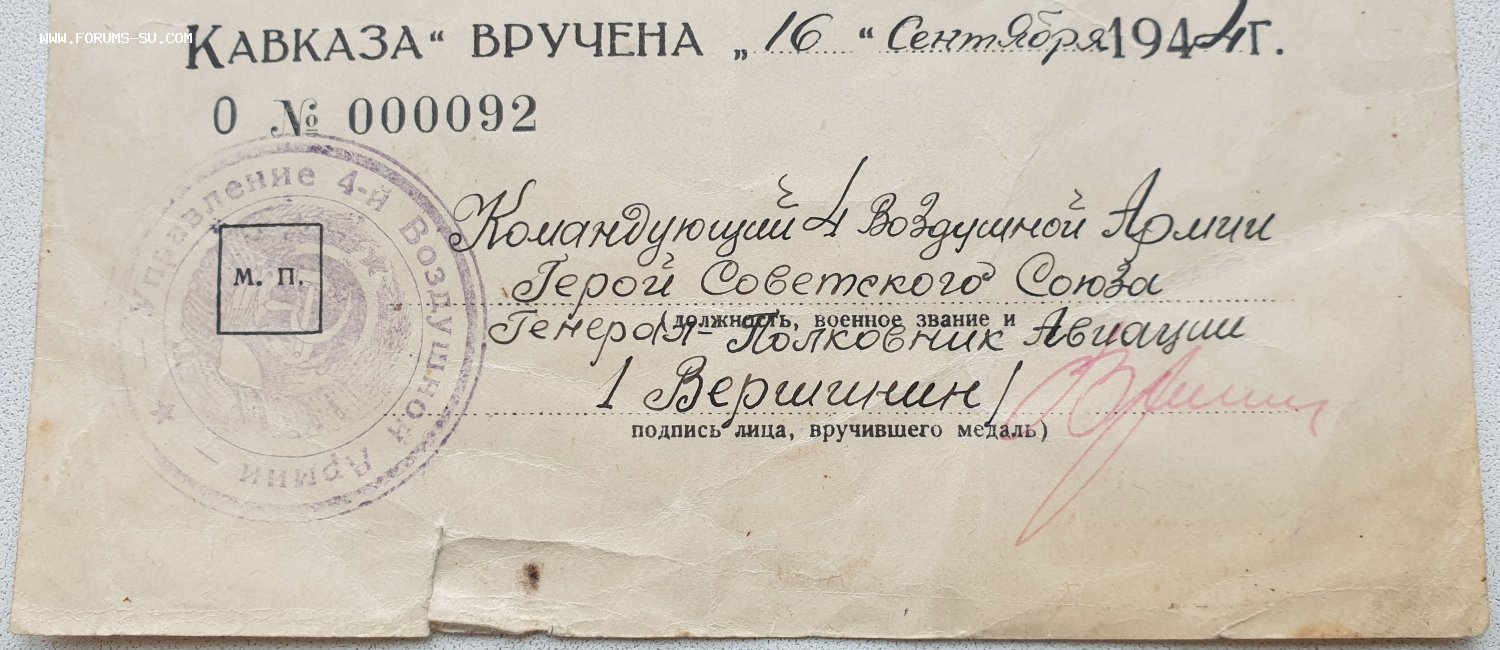 www.forums-su.com
КАВКАЗА“ ВРУЧЕНА „16“ Сентября 1944 г.
О № 000092
Управление 4-й Воздушной Армии
М. П.
Командующий 4 Воздушной Армии
Герой Советского Союза
(должность, военное звание и
Генерал-Полковник Авиации
/ Вершинин /
подпись лица, вручившего медаль)